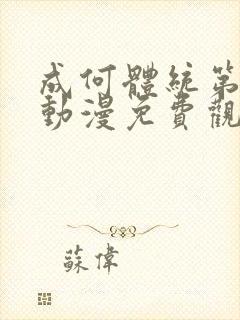 成何體統第
動漫免費觀
蘇偉